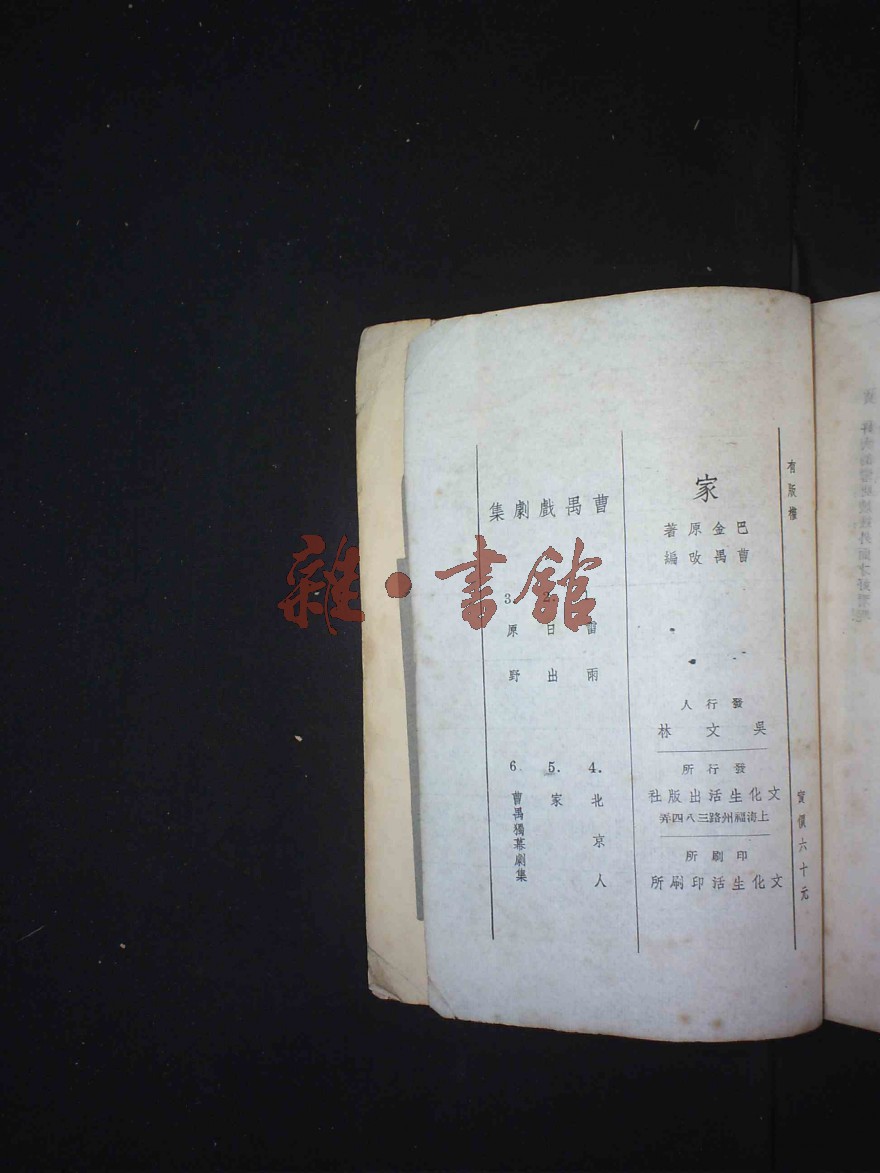 有版權
實價六十元
家
巴金原著
曹禺改編
發行人
吳文林
發行所
文化生活出版社
上海福州路三八四弄
印刷所
文化生活印刷所
曹禺戲劇集
雷雨
日出
3. 原野
4. 北京人
5. 家
6. 曹禺獨幕劇集
雜·書館